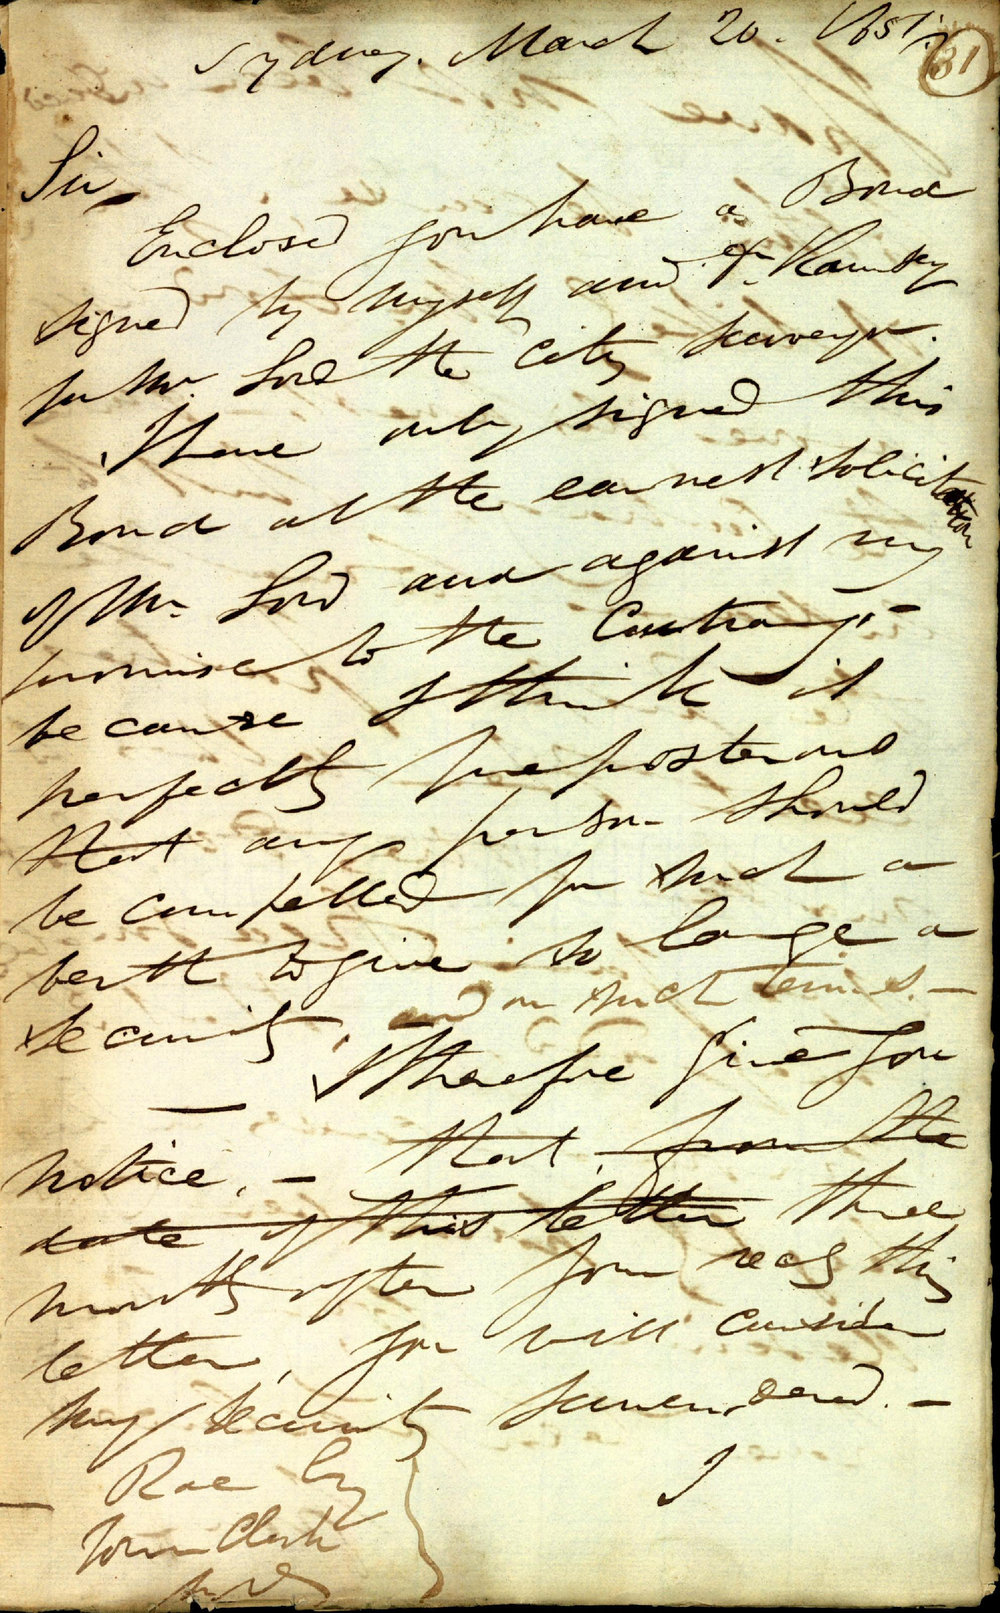 Sydney. March 20. 1851.
31
Sir,
Enclosed you have a Bond
signed by myself and Ramsay
for Mr. Lord the City Surveyor.
I have only signed this
Bond at the earnest solicitation
of Mr. Lord and against my
promise to the Contrary;-
because I think it
perfectly preposterous
that any person should
be compelled for such a
berth to give so large a
security, and on such terms. -
I therefore give you
notice, - that, from the
date of this letter three
months after you rec this
letter, you will consider
my security surrendered. -
I
Rae Esq
Town Clerk